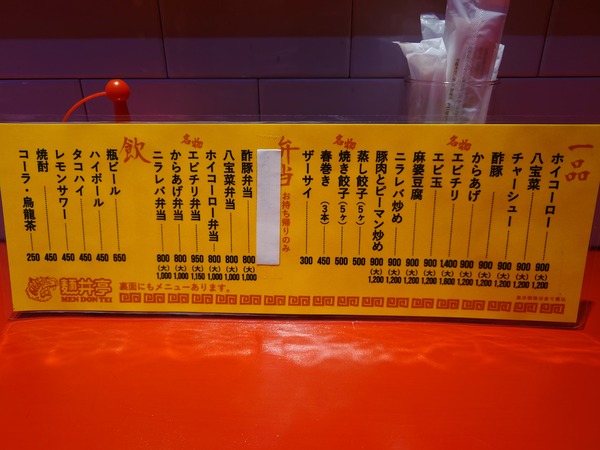 一品
ホイコーロー 900 (大)1,200
八宝菜 900 (大)1,200
チャーシュー 900 (大)1,200
酢豚 900 (大)1,200
からあげ 900 (大)1,200
名物
エビチリ 1,400 (大)1,600
エビ玉 900 (大)1,200
麻婆豆腐 900 (大)1,200
ニラレバ炒め 900 (大)1,200
豚肉とピーマン炒め 900 (大)1,200
蒸し餃子(5ヶ) 500
名物
焼き餃子(5ヶ) 500
春巻き(3本) 450
ザーサイ 300
弁当 お持ち帰りのみ
酢豚弁当 800 (大)1,000
八宝菜弁当 800 (大)1,000
ホイコーロー弁当 800 (大)1,000
名物
エビチリ弁当 950 (大)1,150
からあげ弁当 (大)1,000
ニラレバ弁当 800 (大)1,000
飲
瓶ビール 650
ハイボール 450
タコハイ 450
レモンサワー 450
焼酎 450
コーラ・烏龍茶 250
麺丼亭
MEN DON TEI
裏面にもメニューあります。